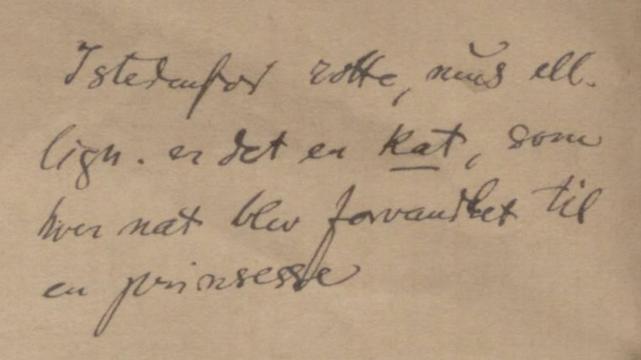 Istedenfor rotte, mus ell.
lign. er det en kat, som
hver nat blev forvandlet til
en prinsesse